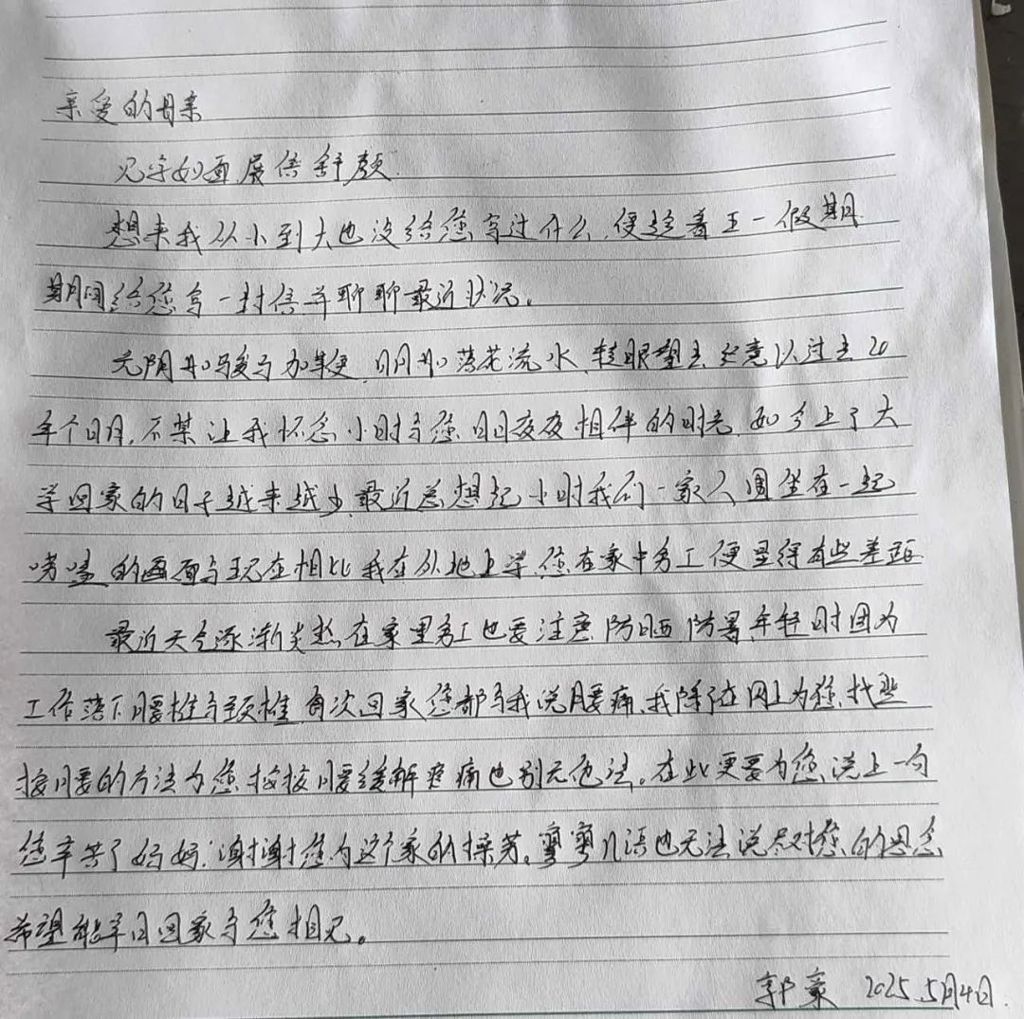 亲爱的母亲
见字如面,展信舒颜.
想来我从小到大也没给您写过什么,便趁着五一假期
期间给您写一封信并聊聊最近状况。
光阴如骏马加鞭,日月如落花流水,转眼望去竟以过去20
年个日月,不禁让我怀念小时与您日日夜夜相伴的时光,如今上了大
学回家的日子越来越少,最近总想起小时我们一家人围坐在一起
唠嗑的画面与现在相比我在外地上学,您在家中务工便显得有些差距
最近天气逐渐炎热,在家里务工也要注意防晒防暑,年轻时因为
工作落下腰椎与颈椎,每次回家您都与我说腰痛,我除了在网上为您找些
按腰的方法为您按按腰缓解疼痛也别无他法。在此更要为您说上一句
您辛苦了妈妈,谢谢您为这个家的操劳。寥寥几语也无法说尽对您的思念
希望能早日回家与您相见。
郭豪 2025.5月4日.